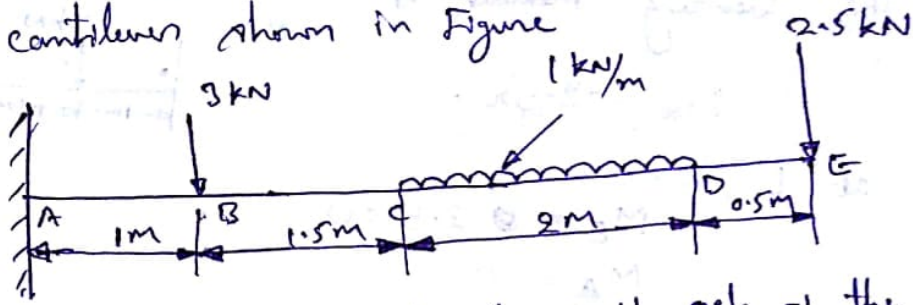 cantilever shown in Figure
2.5 kN
1 kN/m
3 kN
A
B
C
D
E
1m
1.5m
2M
0.5m
the